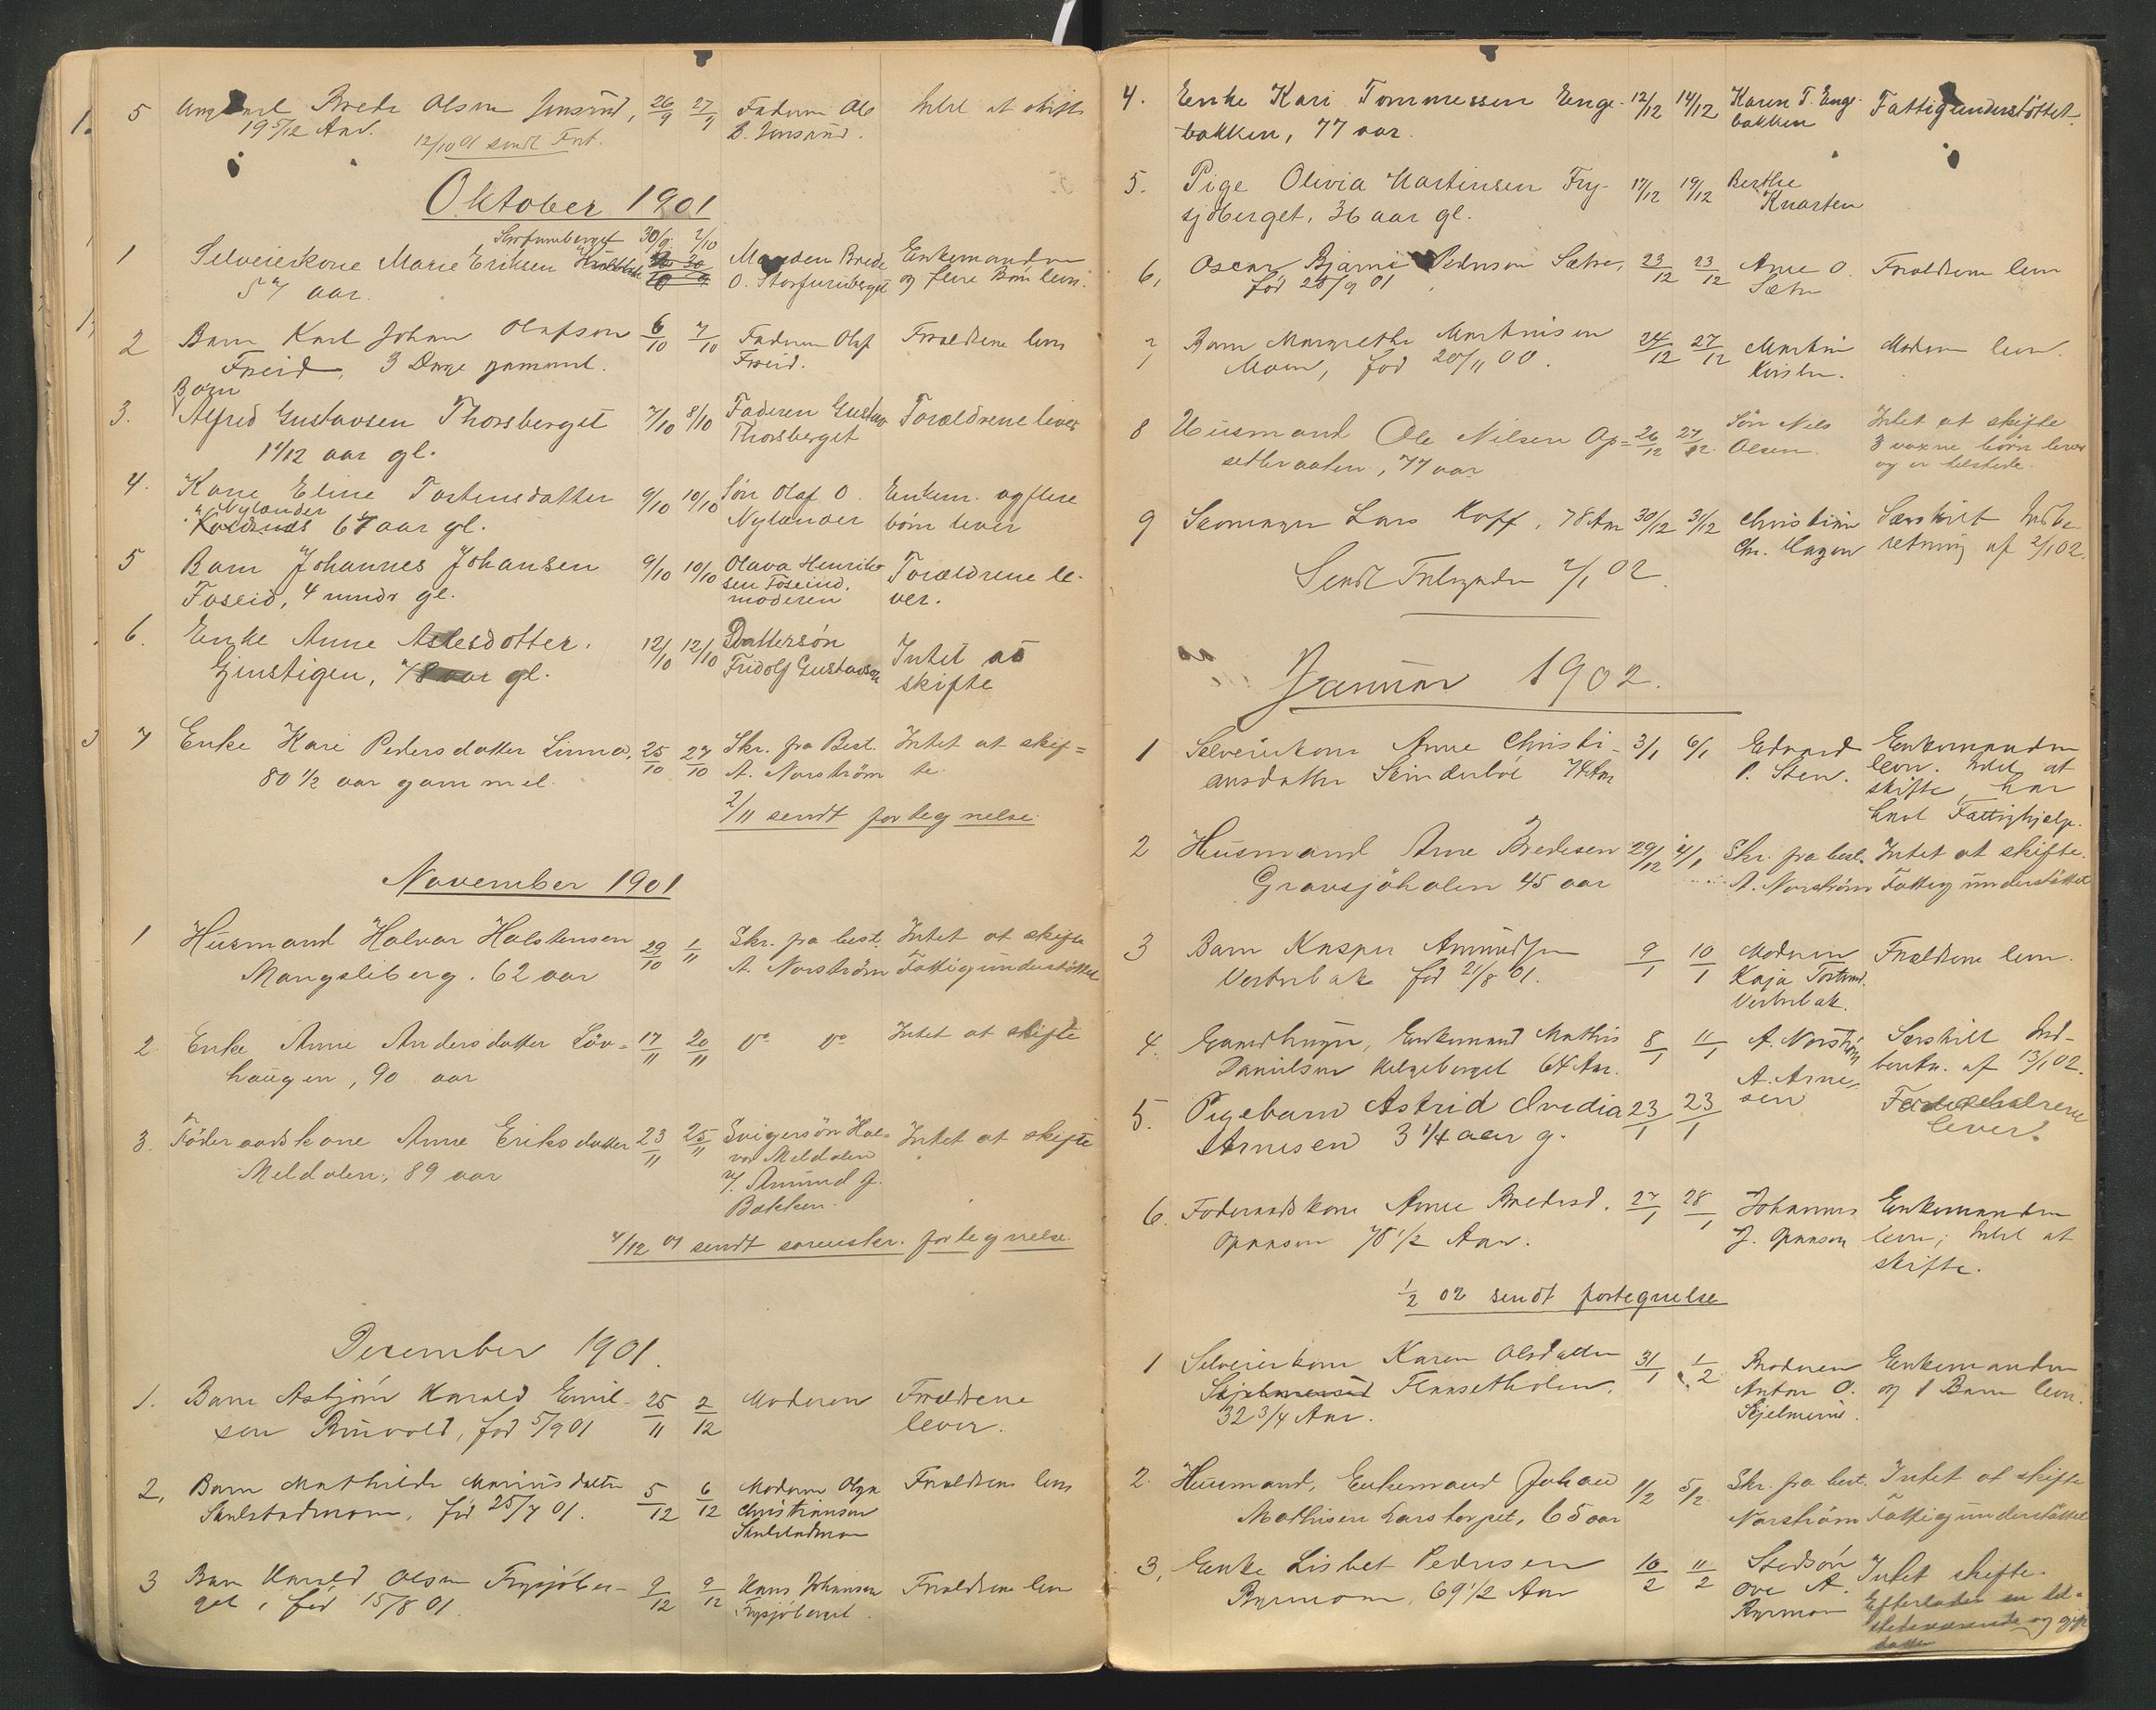 5 Ungkarl Brede Olsen Jonsrud, 26/9 27/9 Faderen Ole Intet at skifte
19 5/12 Aar. B. Jonsrud.
12/10 01 sendt Fort.
Oktober 1901
Storfuruberget 30/9 2/10
1 Selveierkone Marie Eriksen Manden Brede Enkemanden
57 aar. O. Storfuruberget og flere Børn lever.
2 Barn Karl Johan Olafsen 6/10 7/10 Faderen Olaf Forældrene lever
Froeid, 3 Dage gammel. Froeid.
Barn
3. Alfred Gustavsen Thorsberget 7/10 8/10 Faderen Gustav Forældrene lever
1 1/12 aar gl. Thorsberget
4. Kone Eline Tostensdatter 9/10 10/10 Søn Olaf O. Enkem. og flere
Nylander
67 aar gl. Nylander børn lever
5 Barn Johannes Johansen 9/10 10/10 Olava Henrik-
sen Foseid. Forældrene le-
Foseid, 4 mndr gl. moderen ver.
6. Enke Anne Aslesdotter. 12/10 12/10 Dattersøn Intet at
Gjenstigen, 78 aar gl. Fridolf Gustavsen skifte
7 Enke Kari Pedersdatter Linna, 25/10 27/10 Skr. fra Best. Intet at skif=
80 1/2 aar gammel. A. Norström te.
2/11 sendt fortegnelse.
November 1901
1 Husmand Halvor Halstensen 29/10 1/11 Skr. fra best. Intet at skifte
Mangsliberg. 62 aar A. Norström Fattigunderstöttet
2 Enke Anne Andersdatter Löv= 17/11 20/11 do do Intet at skifte
haugen, 90 aar
3. Föderaadskone Anne Eriksdatter 23/11 25/11 Svigersøn Hal= Intet at skifte
Meldalen, 89 aar vor Meldalen
v/ Amund J.
Bakken.
4/12 01 sendt sorenskr. fortegnelse.
December 1901.
1. Barn Asbjörn Harald Emil- 25/11 2/12 Moderen Forældrene
sen Buvold, fød 5/9 01 lever.
2, Barn Mathilde Mariusdatter 5/12 6/12 Moderen Olga Forældrene lever
Skulstadmoen, född 25/7 01. Christiansen
Skulstadmoen
3 Barn Harald Olsen Frysjöber- 9/12 9/12 Hans Johansen Forældrene lever
get, född 15/8 01. Frysjöberget.
4. Enke Kari Tommessen Enge- 12/12 14/12 Karen T. Enge- Fattigunderstöttet.
bakken, 77 aar. bakken
5. Pige Olivia Martinsen Fry- 17/12 19/12 Berthe
sjöberget, 36 aar gl. Knarten
6, Oscar Bjarne Pedersen Sætre, 23/12 23/12 Arne O. Forældrene lever
fød 28/9 01 Sætre
7 Barn Margrethe Martinsen 24/12 27/12 Martin Moderen lever.
Moen, fød 20/11 00.
8 Husmand Ole Nilsen Op= 26/12 27/12. Søn Nils Intet at skifte
setbraaten, 77 aar Olsen. 3 voxne børn lever
og er tilstede.
9 Lars Hoff, 78 Aar 30/12 31/12 Christian Særskilt Indbe-
Chr. Hagen retning af 2/1 02.
Sendt Fortegnelse 2/1 02.
Januar 1902.
1 Selveierkone Anne Christi- 3/1 6/1 Edvard Enkemanden
ansdatter Skinderböl 74 Aar P. Sten. lever. Intet at
skifte, har
havt Fattighjelp.
2 Husmand Arne Bredesen 29/12 4/1 Skr. fra best. Intet at skifte.
Gravsjöhalen 45 aar A. Norström Fattigunderstöttet
3 Barn Kasper Amundsen 9/1 10/1 Moderen Forældrene lever.
Vesterbak fød 21/8 01. Kaja
Vesterbak.
4. Enkemand Mathis 8/1 11/1 A. Norström Særskilt Ind-
Danielsen Helgeberget 64 Aar. beretn. af 13/1 02.
A. Arne-
sen
5. Pigebarn Astrid Ovedia 23/1 23/1 Forældrene
Arnesen 3 1/4 aar g. lever.
6. Föderaadskone Anne Bredesd. 27/1 28/1 Johannes Enkemanden
Opaasen 78 1/2 Aar. J. Opaasen lever; Intet at
skifte.
1/2 02 sendt fortegnelse
1 Selveierkone Karen Olsdatter 31/1 1/2 Broderen Enkemanden
Skjelmerud Flansetholen. Anton O. og 1 Barn lever.
32 3/4 Aar. Skjelmerud.
2. Husmand, Enkemand Johan 1/2 5/2 Skr. fra best. Intet at skifte
Mathisen Larstorpet, 65 aar Norström Fattigunderstöttet
3, Enke Lisbet Pedersen 10/2 11/2 Stedsøn Intet skifte.
Ryrmoen, 69 1/2 Aar Ove A. Efterlader en til=
Ryrmoen stedeværende og gift
datter